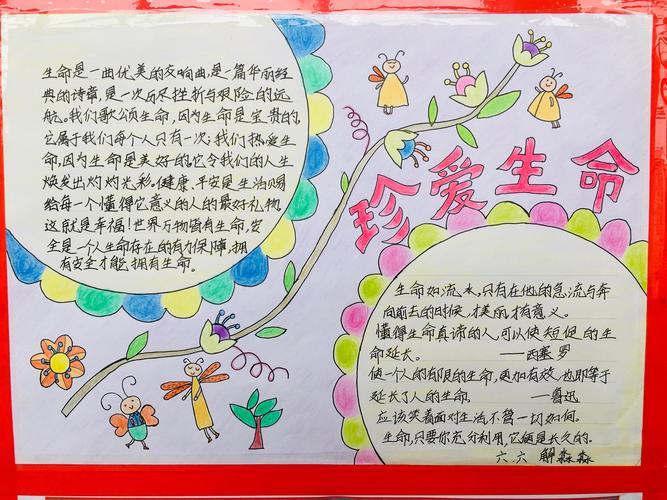 珍爱生命
生命是一曲优美的交响曲,是一篇华丽经
典的诗章,是一次历尽挫折与艰险的远
航。我们歌颂生命,因为生命是宝贵的,
它属于我们每个人只有一次;我们热爱生
命,因为生命是美好的,它令我们的人生
焕发出灼灼光彩。健康、平安是生活赐
给每一个懂得它意义的人的最好礼物,
这就是幸福!世界万物皆有生命,安
全是一个人生命存在的有力保障,拥
有安全才能拥有生命。
生命如流水,只有在他的急流与奔
向前去的时候,才美丽,才有意义。
懂得生命真谛的人,可以使短促的生
命延长。 ——西塞罗
使一个人的有限的生命,更加有效,也即等于
延长了人的生命。 ——鲁迅
应该笑着面对生活,不管一切如何。
生命,只要你充分利用,它便是长久的.
六.六 解淼淼